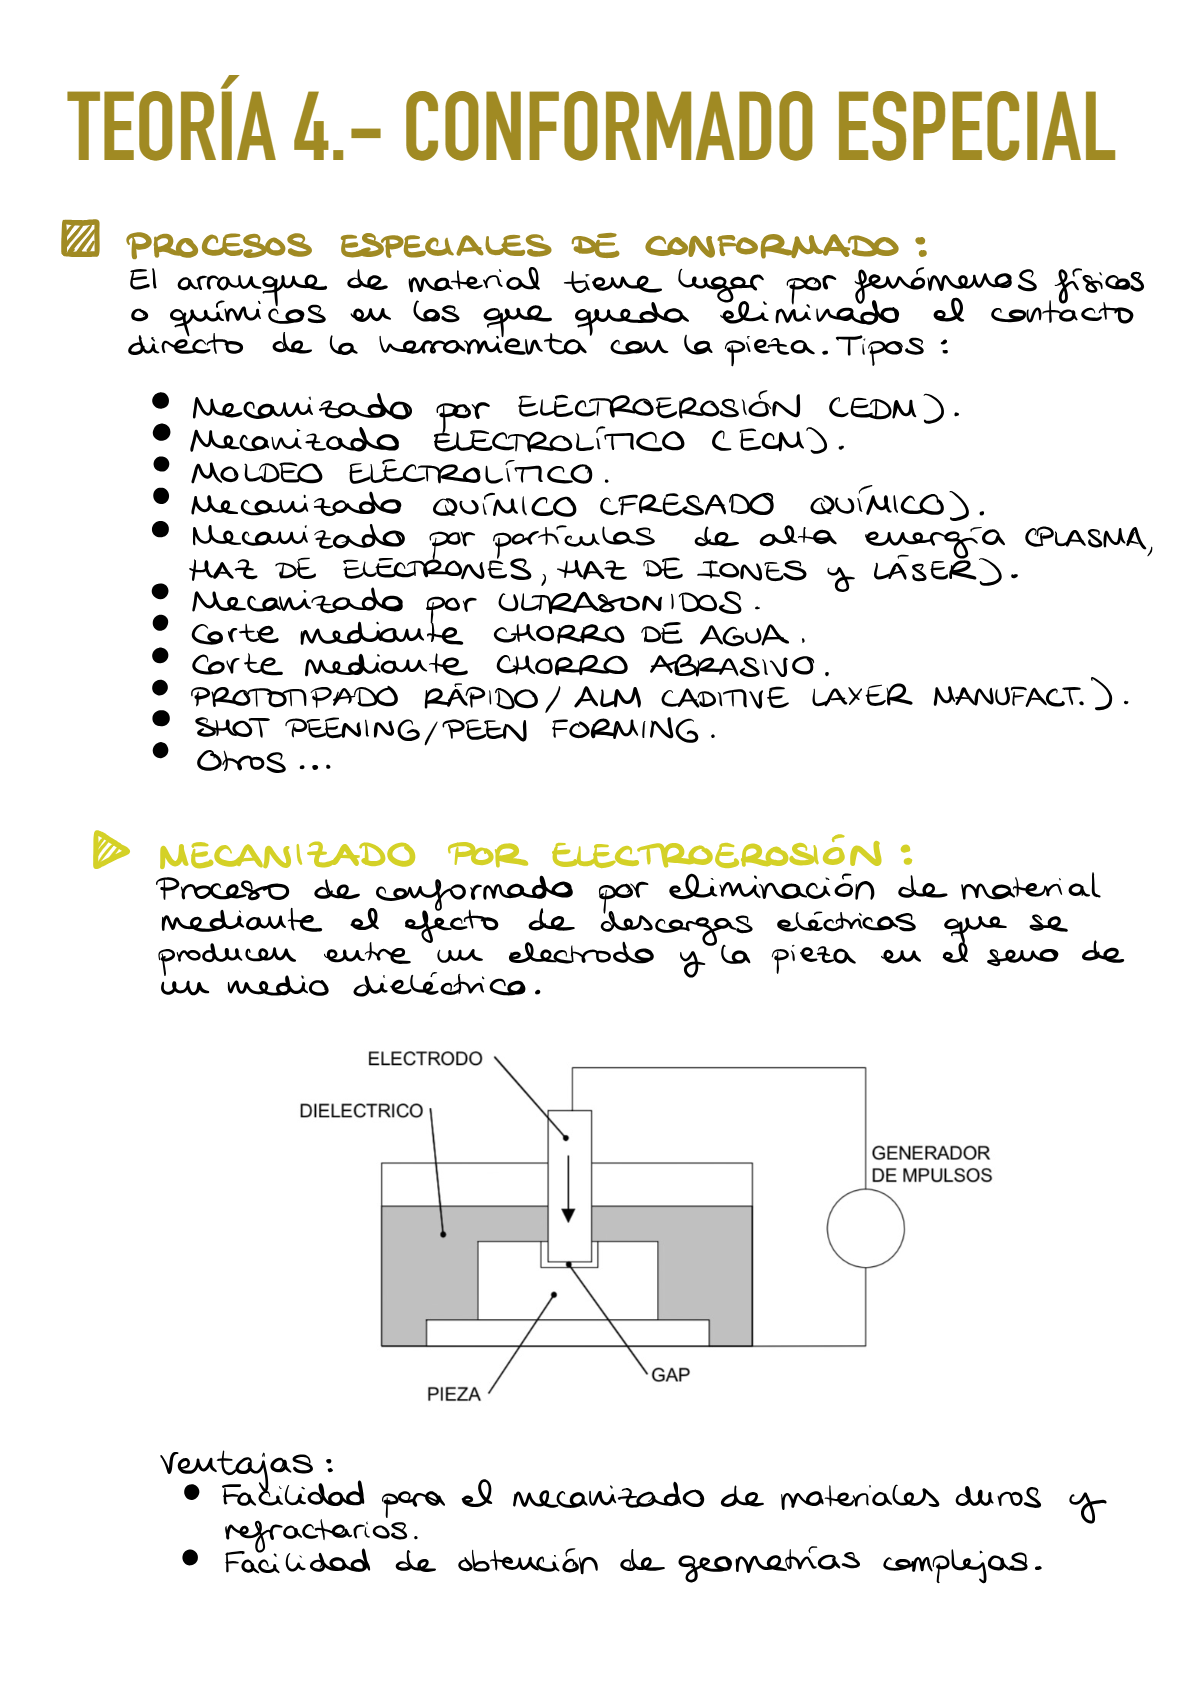 TEORÍA 4.- CONFORMADO ESPECIAL
PROCESOS ESPECIALES DE CONFORMADO:
El arranque de material tiene lugar por fenómenos físicos
o químicos en los que queda eliminado el contacto
directo de la herramienta con la pieza. Tipos:
Mecanizado por ELECTROEROSIÓN (EDM).
Mecanizado ELECTROLÍTICO (ECM).
MOLDEO ELECTROLÍTICO.
Mecanizado QUÍMICO (FRESADO QUÍMICO).
Mecanizado por partículas de alta energía (PLASMA,
HAZ DE ELECTRONES, HAZ DE IONES y LÁSER).
Mecanizado por ULTRASONIDOS.
Corte mediante CHORRO DE AGUA.
Corte mediante CHORRO ABRASIVO.
PROTOTIPADO RÁPIDO / ALM (ADITIVE LAXER MANUFACT.).
SHOT PEENING/PEEN FORMING.
Otros...
MECANIZADO POR ELECTROEROSIÓN:
Proceso de conformado por eliminación de material
mediante el efecto de descargas eléctricas que se
producen entre un electrodo y la pieza en el seno de
un medio dieléctrico.
ELECTRODO
DIELECTRICO
GENERADOR
DE MPULSOS
GAP
PIEZA
Ventajas:
Facilidad para el mecanizado de materiales duros y
refractarios.
Facilidad de obtención de geometrías complejas.